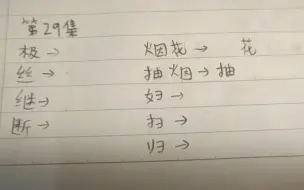 第29集
极→ 烟花→ 花
丝→ 抽烟→抽
继→ 妇→
断→ 扫→
归→